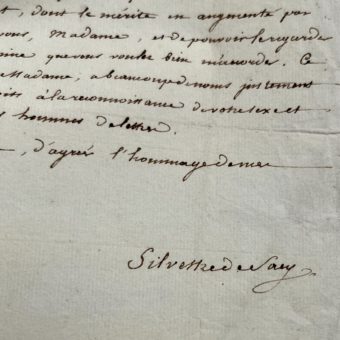 t, dont le mérite en augmenté par
vous, Madame, et de pouvoir le regarde
que vous voulez bien m'accorde. Ce
Madame, a beaucoup de nous justement
oits à la reconnoissance de votre sexe et
s hommes de lettres.
, d'agréer l'hommage de mes
Silvestre de Sacy